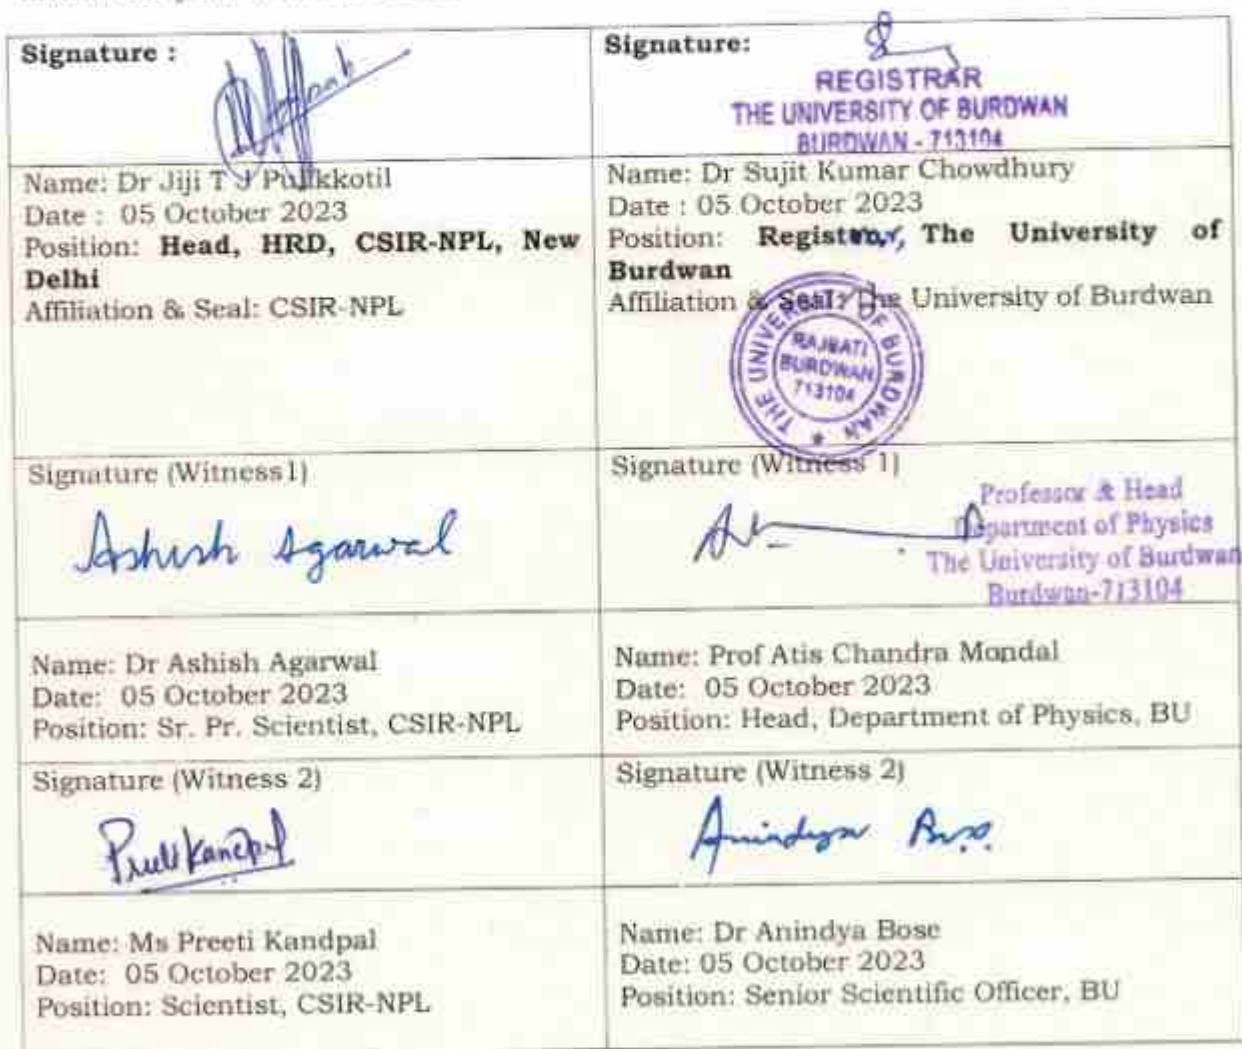 Signature :
Signature:
REGISTRAR
THE UNIVERSITY OF BURDWAN
BURDWAN - 713104
Name: Dr Jiji T J Pulikkotil
Date : 05 October 2023
Position: Head, HRD, CSIR-NPL, New
Delhi
Affiliation & Seal: CSIR-NPL
Name: Dr Sujit Kumar Chowdhury
Date : 05 October 2023
Position: Registrar, The University of
Burdwan
Affiliation & Seal: The University of Burdwan
THE UNIVERSITY OF BURDWAN
RAJBATI
BURDWAN
713104
Signature (Witness1)
Ashish Agarwal
Signature (Witness 1)
Professor & Head
Department of Physics
The University of Burdwan
Burdwan-713104
Name: Dr Ashish Agarwal
Date: 05 October 2023
Position: Sr. Pr. Scientist, CSIR-NPL
Name: Prof Atis Chandra Mondal
Date: 05 October 2023
Position: Head, Department of Physics, BU
Signature (Witness 2)
Signature (Witness 2)
Anindya Bose
Name: Ms Preeti Kandpal
Date: 05 October 2023
Position: Scientist, CSIR-NPL
Name: Dr Anindya Bose
Date: 05 October 2023
Position: Senior Scientific Officer, BU